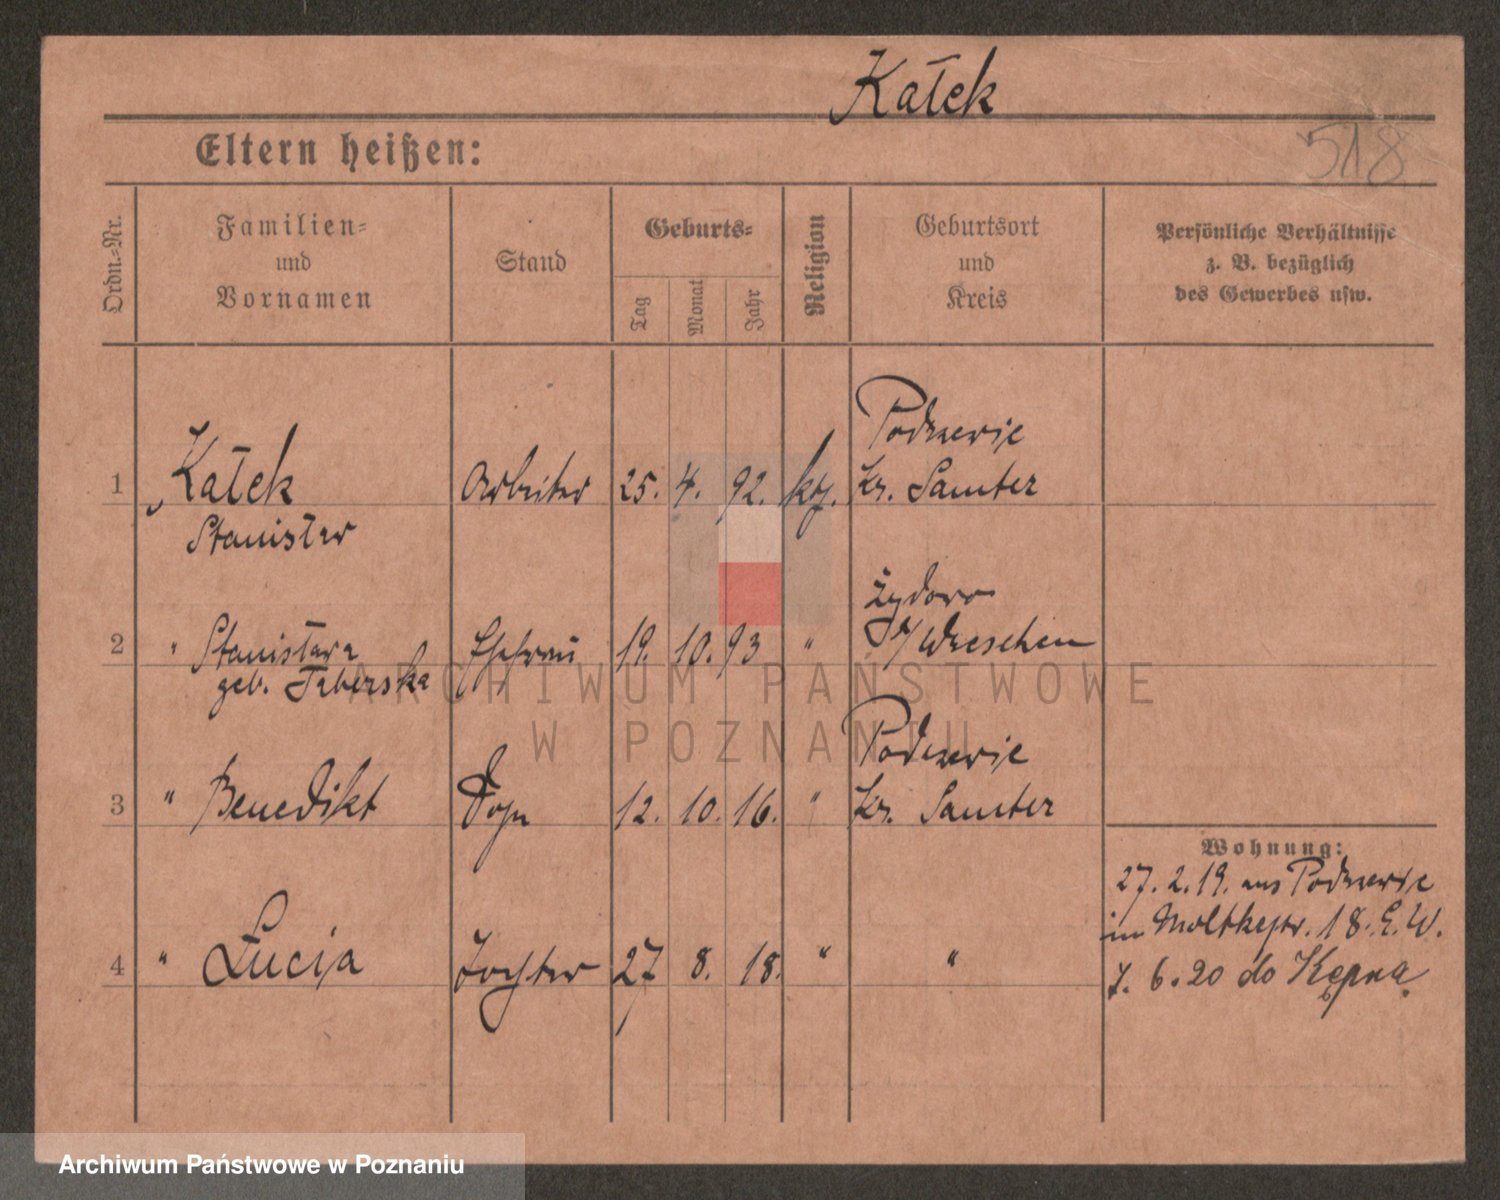 Kałek
Eltern heißen:
518
Ordn.-Nr.
Familien-
und
Vornamen
Stand
Geburts-
Tag
Monat
Jahr
Religion
Geburtsort
und
Kreis
Persönliche Verhältnisse
z. B. bezüglich
des Gewerbes usw.
Podrzewie
1 Kałek Arbeiter 25. 4. 92. kth. Kr. Samter
Stanisław
2 " Stanisława Ehefrau 19. 10. 93 " Wreschen
geb. Taberska
Podrzewie
3 " Benedikt Sohn 12. 10. 16. " Kr. Samter
4 " Lucja Tochter 27 8. 18. " "
Wohnung:
27. 2. 19. aus Podrzewie
in Moltkestr. 18. E. W.
7. 6. 20 do Kępna
ARCHIWUM PAŃSTWOWE
W POZNANIU
Archiwum Państwowe w Poznaniu